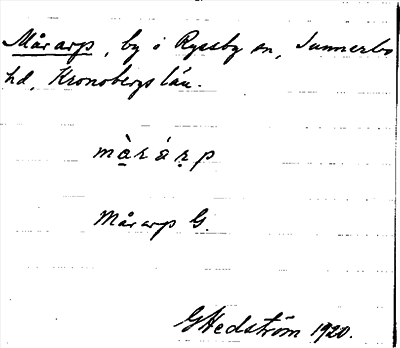 Mårarp, by i Ryssby sn, Sunnerbo
hd, Kronobergs län.
mạ̀rárp
Mårarp G.
GHedström 1920.